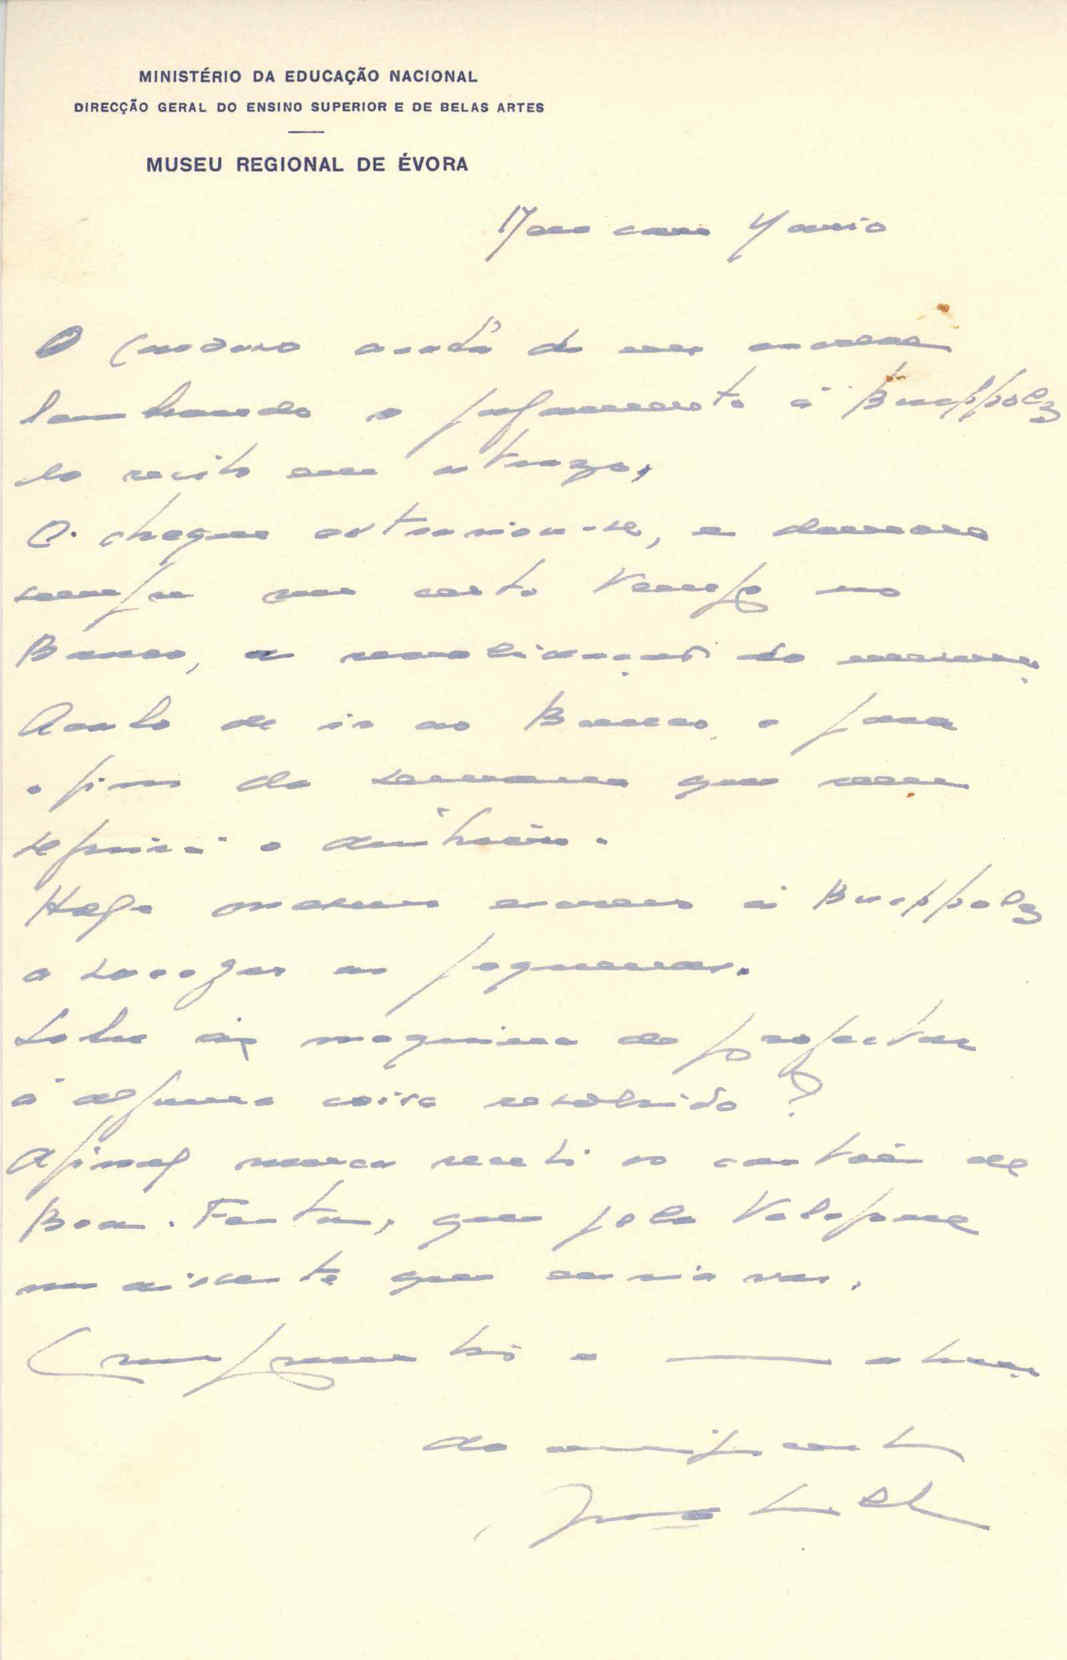 MINISTÉRIO DA EDUCAÇÃO NACIONAL
DIRECÇÃO GERAL DO ENSINO SUPERIOR E DE BELAS ARTES
MUSEU REGIONAL DE ÉVORA
Meu caro Mario
O acaba de me
lembrando o pagamento á Bucholz
do recibo em atrazo,
O cheque extraviou-se, e demora
sempre um certo tempo no
Banco, a do mesmo.
Acabo de ir ao Banco, e para
o fim da semana que vem
seguirá o dinheiro.
Hoje mesmo escrevo á Bucholz
a socegar
Sobre a maquina de projectar
á alguma coisa resolvido?
Afinal nunca recebi o cartão de
Boas-Festas, que pelo telefone
me disseste que enviavas.
Cumprimentos e abraço
do amigo